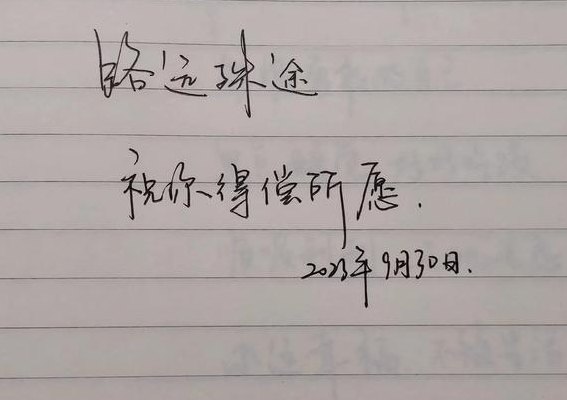 路远殊途
祝你得偿所愿.
2023年9月30日.